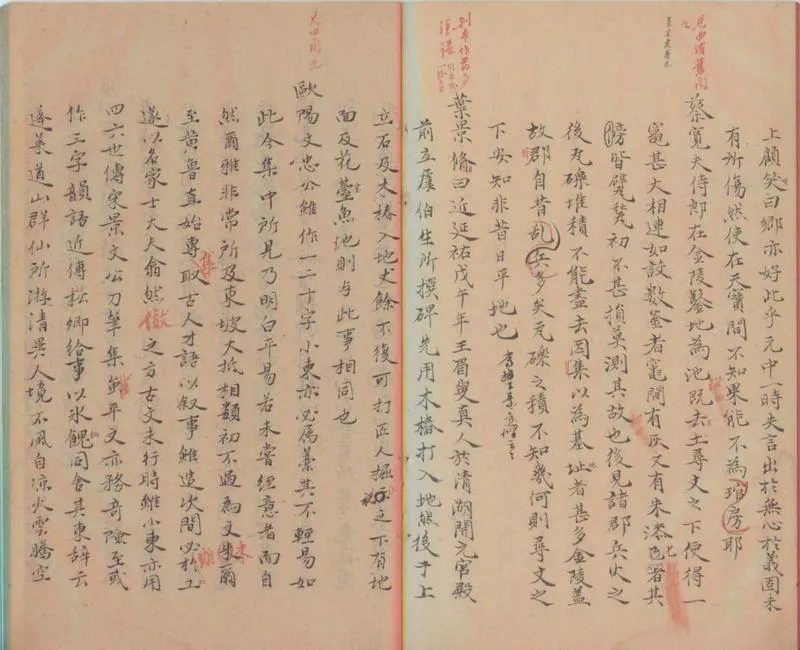 見曲洧舊聞
上顧笑曰卿亦好此乎元中一時失言出於無心於義固未
有所傷然使在天寶間不知果能不為琯房耶
蔡寬夫侍郎在金陵鑿地為池既去土尋丈之下便得一
竈甚大相連如設數釜者竈間有灰又有朱漆匕箸其
傍皆甓甃初不甚損莫測其故也後見諸郡兵火之
後瓦礫堆積不能盡去因集以為基址者甚多金陵蓋
故郡自昔亂兵多矣瓦礫之積不知幾何則尋丈之
下安知非昔日平地也
葉景脩曰近延祐戊午年王眉叟真人於清湖開元宮殿
前立虞伯生所撰碑先用木樁打入地然後于上
立石及木樁入地丈餘不復可打匠人掘之下有地
面及花臺魚池則与此事相同也
歐陽文忠公雖作一二十字小柬亦必属藁其不輕易如
此今集中所見乃明白平易若未嘗經意者而自
然爾雅非常所及東坡大抵相類初不過為文采爾
至黃魯直始專取古人才語以叙事雖造次間必於工
遂以名家士大夫翕然傚之方古文未行時雖小柬亦用
四六世傳宋景文公刀筆集雖平文亦務奇險至或
作三字韻語近傳松卿給事以氷餽同舍其柬辭云
蓬萊道山群仙所游清異人境不風自凉火雲騰空